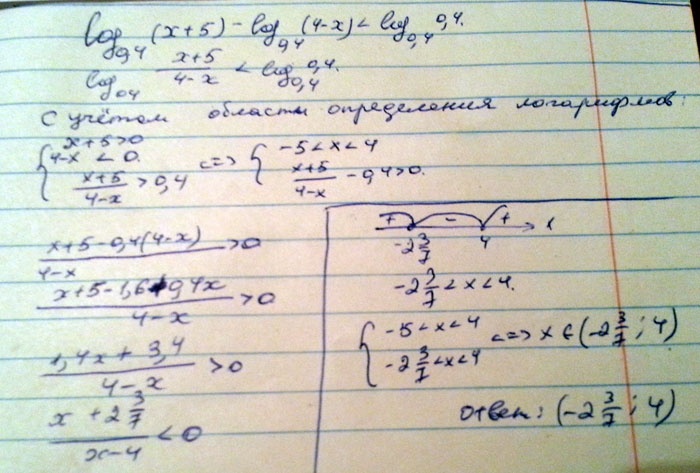 log₀,₄ (x+5) - log₀,₄ (4-x) < log₀,₄ 0,4.
log₀,₄ (x+5)/(4-x) < log₀,₄ 0,4.
С учётом области определения логарифмов:
{ x+5>0
4-x < 0.
(x+5)/(4-x) > 0,4
<=> { -5 < x < 4
(x+5)/(4-x) - 0,4 > 0.
(x+5-0,4(4-x))/(4-x) > 0
(x+5-1,6+0,4x)/(4-x) > 0
(1,4x + 3,4)/(4-x) > 0
(x + 2 3/7)/(x-4) < 0
+ - + x
-2 3/7 4
-2 3/7 < x < 4.
{ -5 < x < 4
-2 3/7 < x < 4
<=> x ∈ (-2 3/7 ; 4)
Ответ: (-2 3/7 ; 4)